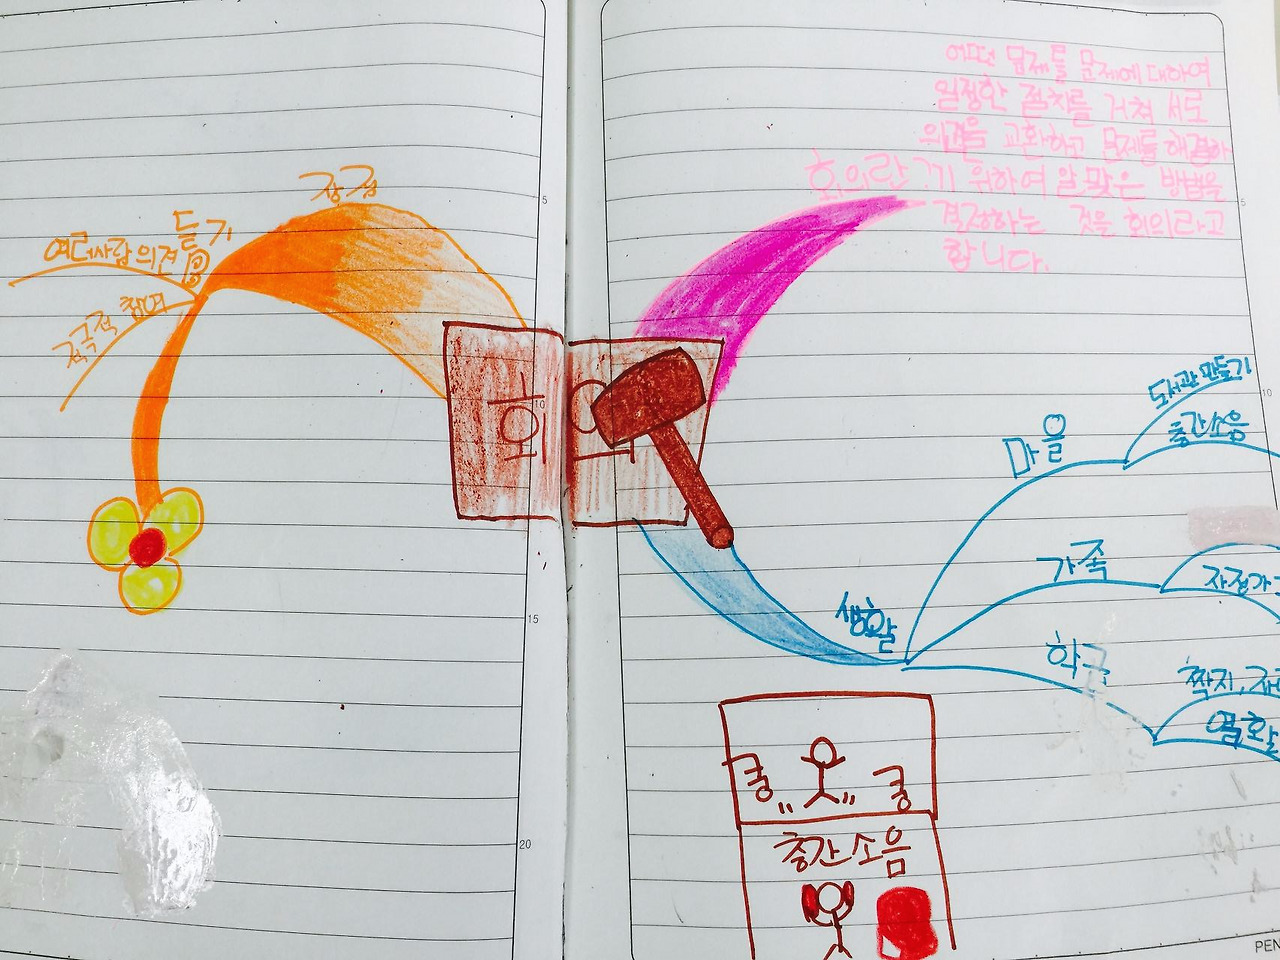 장점
여러사람 의견 듣기
적극적 참여
회의
회의란?
어떤 문제를 문제에 대하여
일정한 절차를 거쳐 서로
의견을 교환하고 문제를 해결하
기 위하여 알맞은 방법을
결정하는 것을 회의라고
합니다.
생활
마을
도서관 만들기
층간소음
가족
학급
짝지,
역할
쿵
쿵
층간소음
5
10
15
20
5
10
PEN